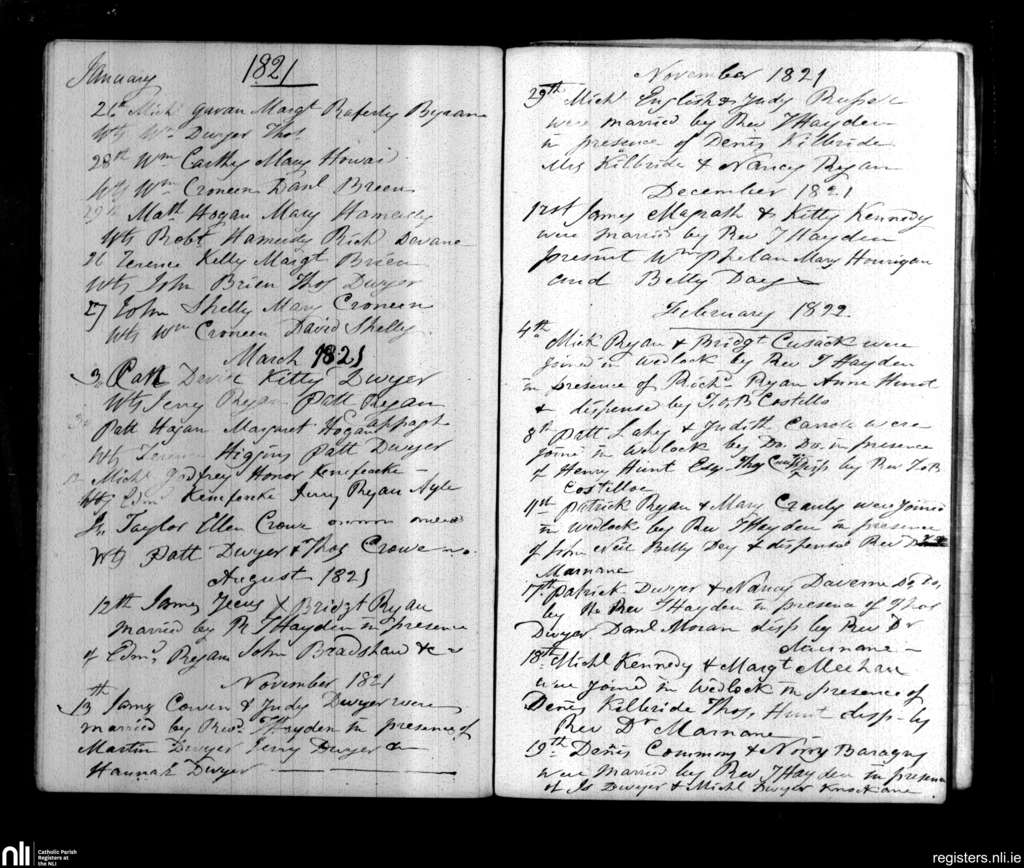 January 1821
26th Mich Gavan Margt Raferty Byrane
Wts Wm Dwyer Thos
28th Wm Carthy Mary
Wts Wm Croneen Danl Breen
29th Matt Hogan Mary
Wts Robt Rich Devane
26 Terence Kelly Margt Brien
Wts John Brien Thos Dwyer
27 John Shelly Mary Croneen
Wts Wm Croneen David Shelly
March 1821
3 Patt Kitty Dwyer
Wts Jerry Ryan Patt Ryan
Patt Hogan Margaret Hogan
Wts Terence Higgins Patt Dwyer
Michl Godfrey Honor
Wts Edm Jerry Ryan Ayle
Js Taylor Ellen Crowe
Wts Patt Dwyer & Thos Crowe
August 1821
12th James & Bridgt Ryan
married by R T Hayden in presence
of Edmd Ryan John Bradshaw &c
November 1821
13th James Cowen & Judy Dwyer were
married by Revd T Hayden in presence of
Martin Dwyer Jerry Dwyer &
Hannah Dwyer
November 1821
29th Michl English & Judy Russel
were married by Rev T Hayden
in presence of Denis Kilbride
Mrs Kilbride & Nancy Ryan
December 1821
1rst James Magrath & Kitty Kennedy
were married by Rev T Hayden
present Wm Phelan Mary Hourigan
and Betty Day
February 1822
4th Mich Ryan & Bridgt Cusack were
joined in wedlock by Rev T Hayden
in presence of Richd Ryan Anne Hunt
& dispense by T & B Costello
8th Patt Lahy & Judith Carrole were
joined in wedlock by Do Do in presence
of Henry Hunt Esq Thos by Rev T & B
Costelloe
11st Patrick Ryan & Mary were joined
in wedlock by Rev T Hayden in presence
of John Neil Betty Dey & dispense Rev D
Marnane
17th Patrick Dwyer & Nancy Daverne Do Do
by the Rev T Hayden in presence of Thos
Dwyer Danl Moran disp by Rev Dr
Marnane
18th Michl Kennedy & Margt Meehan
were joined in Wedlock in presence of
Denis Kilbride Thos Hunt disp by
Rev Dr Marnane
19th Denis Commons & Norry Baragry
were married by Rev T Hayden in presence
of Js Dwyer & Michl Dwyer Knockane
nli
Catholic Parish
Registers at
the NLI
registers.nli.ie